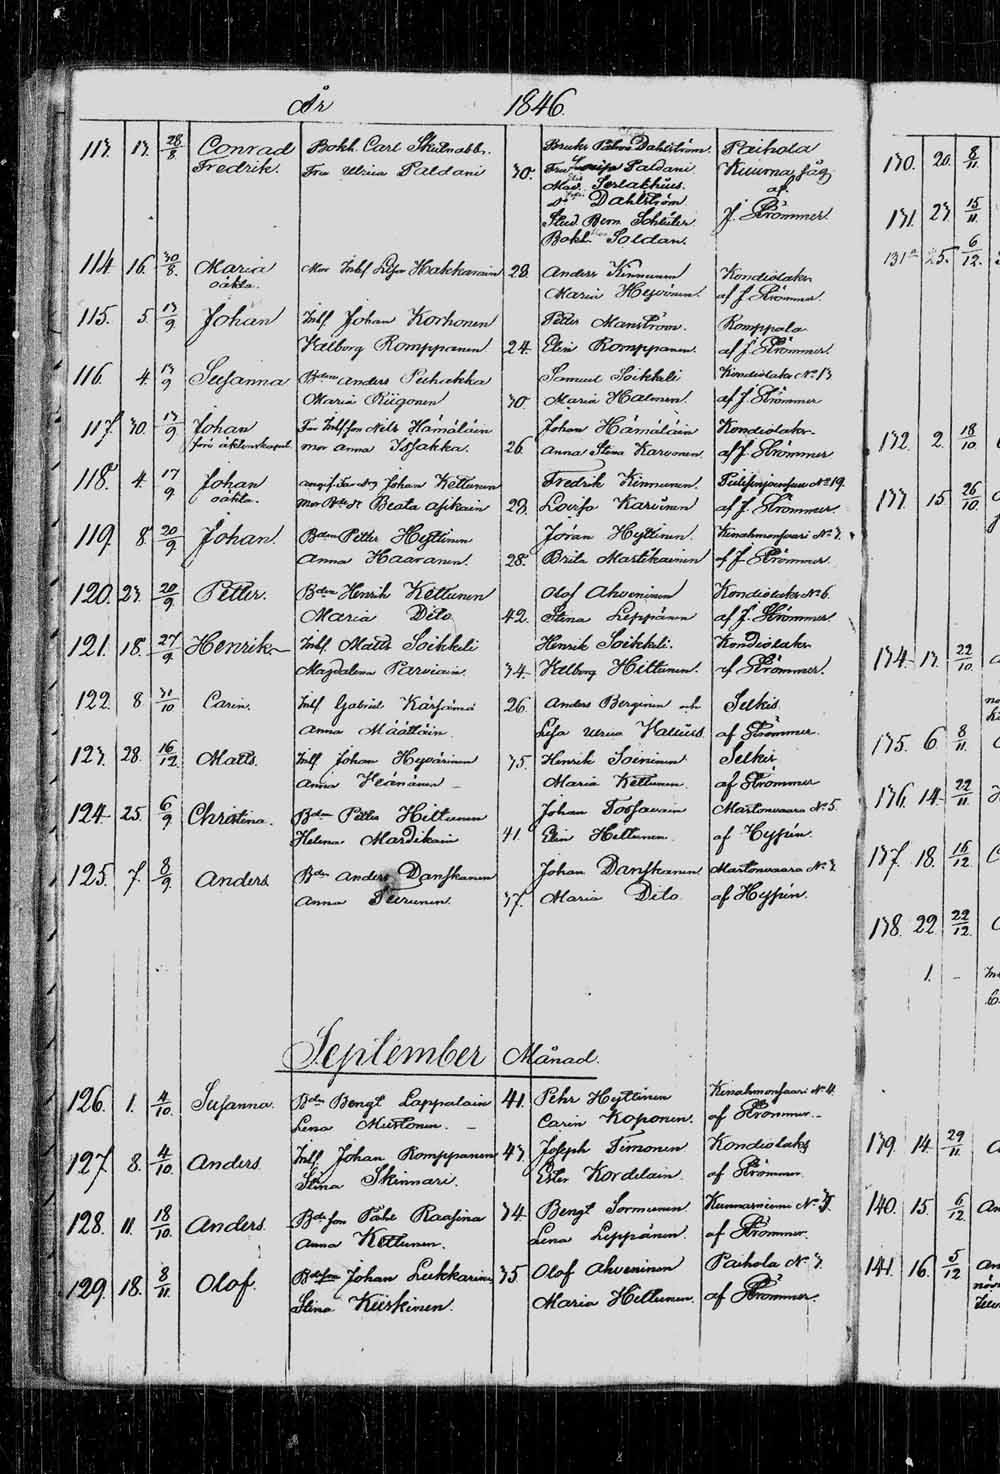 År 1846.
113. 13. 28/8 Conrad Bokh. Carl Bruks Dahlström. Paihola
Fredrik. Fru Ulrica Paldani 30. Fru Lovisa Paldani. Kuurna såg
Mad. af
Do Dahlström J. Strömmer.
Stud. Bern. Schlüter
Bokh. Soldan.
114. 16. 30/8 Maria Mor Inhs Hakkarain 28. Anders Kinnunen Kondiolaks
oäkta. Maria Heyvönen. af J. Strömmer.
115. 5. 13/9 Johan Inhs. Johan Korhonen Petter Manström. Romppala
Valborg Romppanen 24. Elin Romppanen. af J. Strömmer.
116. 4. 13/9 Susanna Bdn Anders Puhakka Samuel Soikkeli Kondiolaks No 13
Maria Riigonen 30. Maria Halmen. af J. Strömmer
117. 30. 13/9 Johan Nils Hämäläin Johan Hämäläin Kondiolaks
mor Anna Issakka. 26. Anna Stina Karvonen. af J. Strömmer
118. 4. 17/9 Johan Johan Kettunen Fredrik Kinnunen. No 19.
oäkta. mor Beata Asikain 28. Lovisa Karvinen af J. Strömmer.
119. 8. 20/9 Johan. Bdn Petter Hyttinen Jöran Hyttinen. Kinahmonsaari No 7.
Anna Haaranen. 28. Brita Martikainen af J. Strömmer.
120. 23. 20/9 Petter. Bdn Henrik Kettunen Olof Ahveninen Kondiolaks No 6.
Maria Dito 42. Stina Leppänen af J. Strömmer.
121. 18. 27/9 Henrik Inhs. Matts Soikkeli Henrik Soikkeli. Kondiolaks
Magdalena Parviain. 34. Valborg Hiltunen. af Strömmer.
122. 8 31/10 Carin. Inhs Gabriel Kärnämä 26. Anders Berginen och Selkis
Anna Määttäin. Lisa Ulrica Walleius. af Strömmer.
123. 28. 16/12 Matts. Inhs Johan Heyvärinen 35. Henrik Soininen. Selkis
Anna Väänänen Maria Kettunen. af Strömmer
124. 25. 6/9 Christina. Bdn Petter Hiltunen Johan Torsavain Martonvaara No 5.
Helena Mardikain 41 Elin Hiltunen. af Hypén.
125. 7. 8/9 Anders Bdn Anders Danskanen Johan Danskanen Martonvaara No 3.
Anna Piirunen. 37. Maria Dito. af Hypén.
September Månad.
126. 1. 4/10. Susanna. Bdn Bengt Lappalain 41. Pehr Hyttinen Kinahmonsaari No 4.
Lena Mustonen. Carin Koponen. af Strömmer.
127. 8. 4/10. Anders. Inhs Johan Romppanen 43. Joseph Timonen Kondiolaks
Stina Skinnari. Ester Kordelain. af Strömmer.
128. 11. 18/10. Anders. Bdeson Påhl Raasina 34. Bengt Sormunen. Kunnasniemi No 7.
Anna Kettunen. Lena Leppänen. af Strömmer.
129. 18. 8/11. Olof. Johan Lukkarinen 35 Olof Ahveninen Paihola No 7.
Stina Kiiskinen. Maria Hiltunen. af Strömmer.
130. 20. 8/11.
131. 23. 15/11.
131a 25. 6/12.
132. 2. 18/10
133. 15 26/10.
134. 13. 22/10.
135. 6 8/11.
136. 14. 22/11
137. 18. 15/12
138. 22 22/12.
1. –
139. 14. 29/11
140. 15. 6/12
141. 16. 5/12